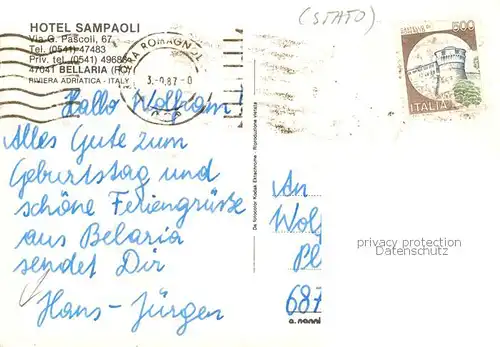 HOTEL SAMPAOLI
Via G. Pascoli, 67
Tel. (0541) 47483
Priv. tel. (0541) 49688
47041 BELLARIA (FO)
RIVIERA ADRIATICA - ITALY
(STATO)
500
ITALIA
ROMAGNOL
87
Hallo Wolfram!
Alles Gute zum
Geburtstag und
schöne Feriengrüße
aus Belaria
sendet Dir
Hans-Jürgen
De fotocolor Kodak Ektachrome - Riproduzione vietata
An
Wolf
Pl
687
privacy protection
Datenschutz